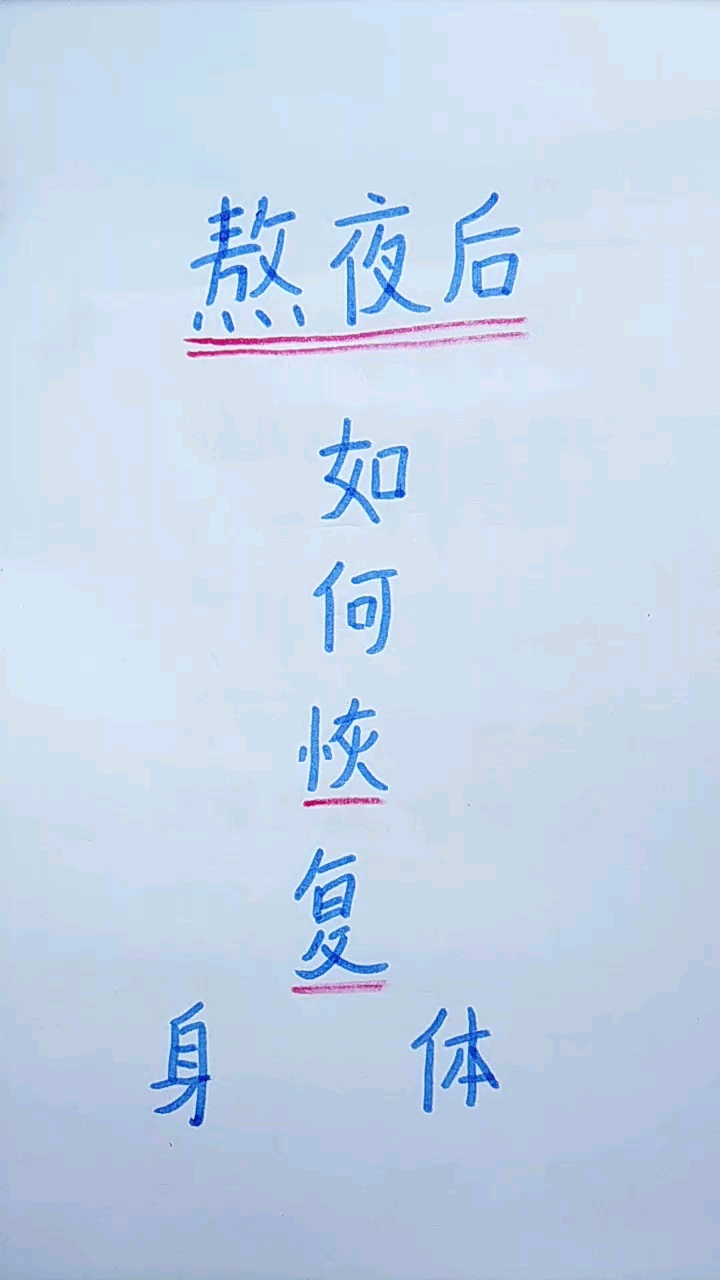 熬夜后
如
何
恢
复
身 体